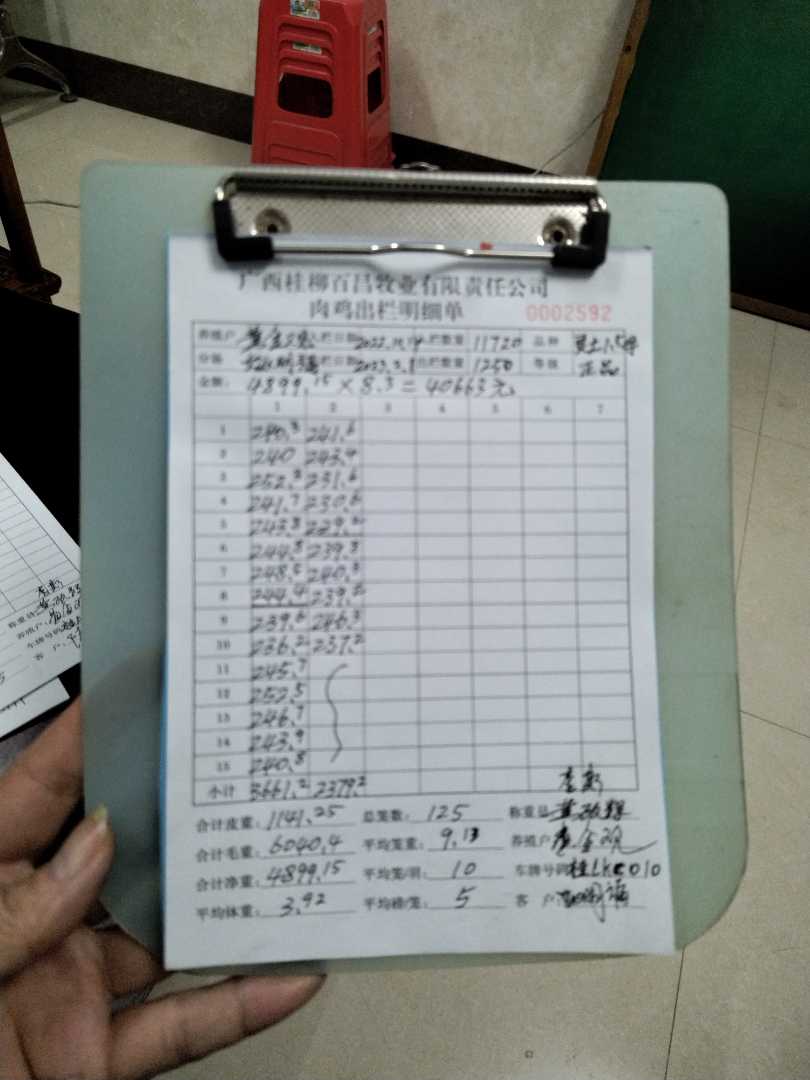 广西桂柳百昌牧业有限责任公司
肉鸡出栏明细单 0002592
养殖户 栏日期 2022.11.14 栏数量 11720 品种
分场 栏日期 2023.3.1 出栏数量 1250 等级 正品
金额: 4899.15 × 8.3 = 40663元
1 2 3 4 5 6 7
1 240.3 241.6
2 240 243.4
3 252.3 231.6
4 241.7 230.6
5 243.8 229.2
6 244.8 239.8
7 248.5 240.3
8 244.4 239.2
9 239.6 246.3
10 236.2 237.2
11 245.7
12 252.5
13 246.7
14 243.9
15 240.8
小计 3661.2 2379.2
合计皮重: 1141.25 总笼数: 125 称重员
合计毛重: 6040.4 平均笼重: 9.13 养殖户
合计净重: 4899.15 平均笼/羽: 10 车牌号码 桂LKC010
平均体重: 3.92 平均磅/笼: 5 客 户:
称重员
养殖户:
车牌号码
客 户: